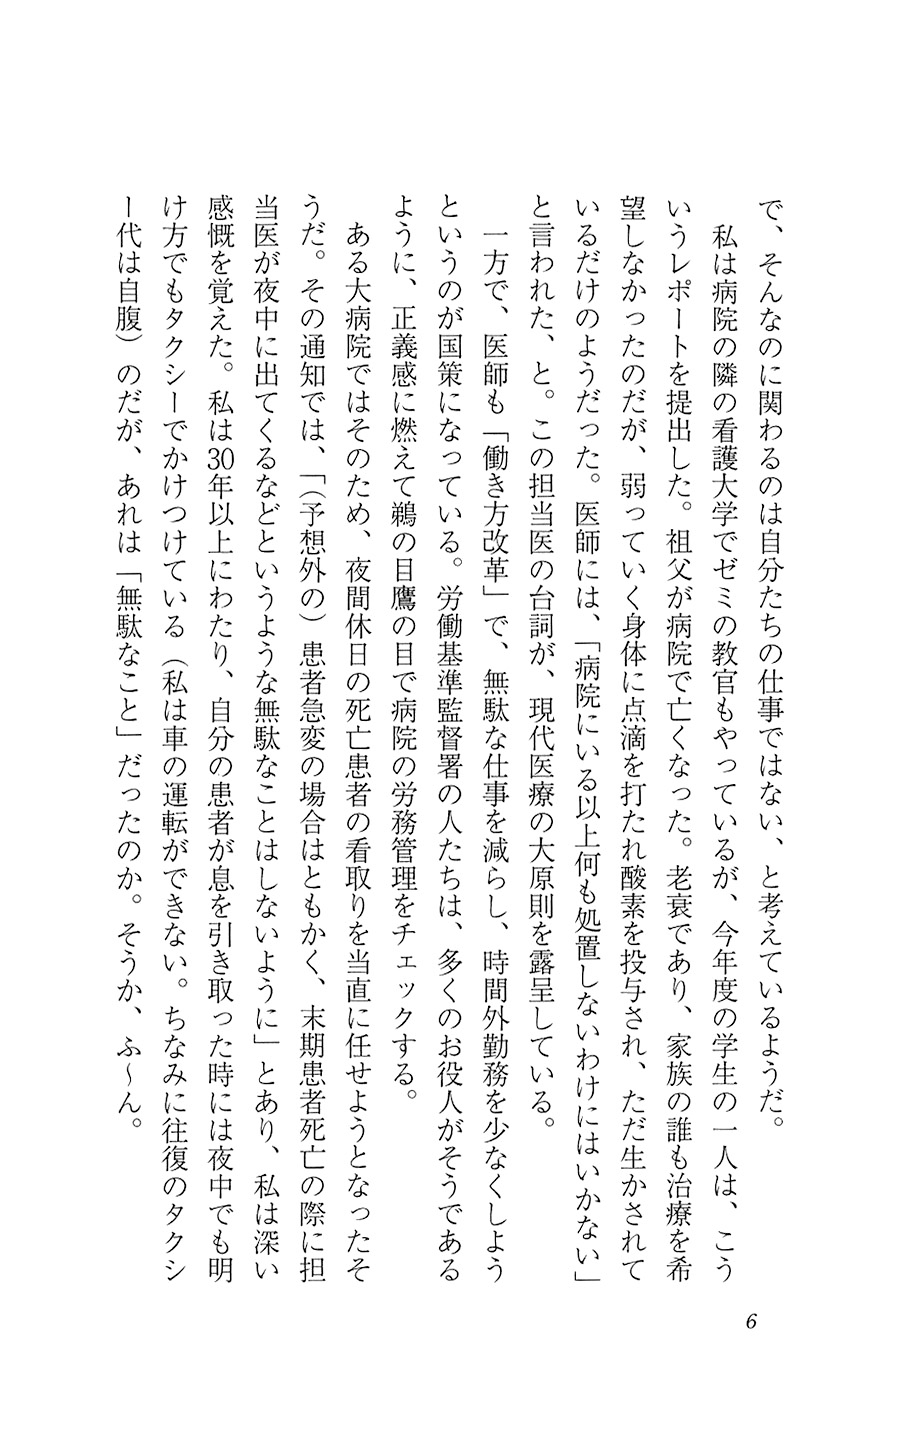 で、そんなのに関わるのは自分たちの仕事ではない、と考えているようだ。
私は病院の隣の看護大学でゼミの教官もやっているが、今年度の学生の一人は、こう
いうレポートを提出した。祖父が病院で亡くなった。老衰であり、家族の誰も治療を希
望しなかったのだが、弱っていく身体に点滴を打たれ酸素を投与され、ただ生かされて
いるだけのようだった。医師には、「病院にいる以上何も処置しないわけにはいかない」
と言われた、と。この担当医の台詞が、現代医療の大原則を露呈している。
一方で、医師も「働き方改革」で、無駄な仕事を減らし、時間外勤務を少なくしよう
というのが国策になっている。労働基準監督署の人たちは、多くのお役人がそうである
ように、正義感に燃えて鵜の目鷹の目で病院の労務管理をチェックする。
ある大病院ではそのため、夜間休日の死亡患者の看取りを当直に任せようとなったそ
うだ。その通知では、「（予想外の）患者急変の場合はともかく、末期患者死亡の際に担
当医が夜中に出てくるなどというような無駄なことはしないように」とあり、私は深い
感慨を覚えた。私は30年以上にわたり、自分の患者が息を引き取った時には夜中でも明
け方でもタクシーでかけつけている（私は車の運転ができない。ちなみに往復のタクシ
ー代は自腹）のだが、あれは「無駄なこと」だったのか。そうか、ふ～ん。
6